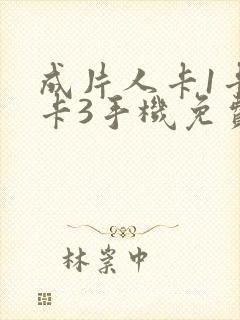 成片人卡1卡
卡3手機免費
林棠中